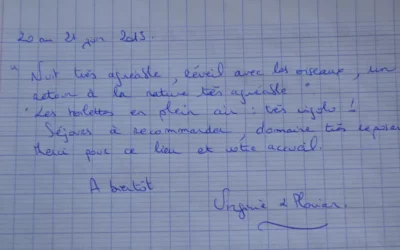 20 au 21 juin 2013.
" Nuit très agréable, réveil avec les oiseaux, un
retour à la nature très agréable "
" Les toilettes en plein air : très rigolo !
Séjours à recommander, domaine très reposan
Merci pour ce lieu et votre accueil.
A bientôt
Virginie & Florian.